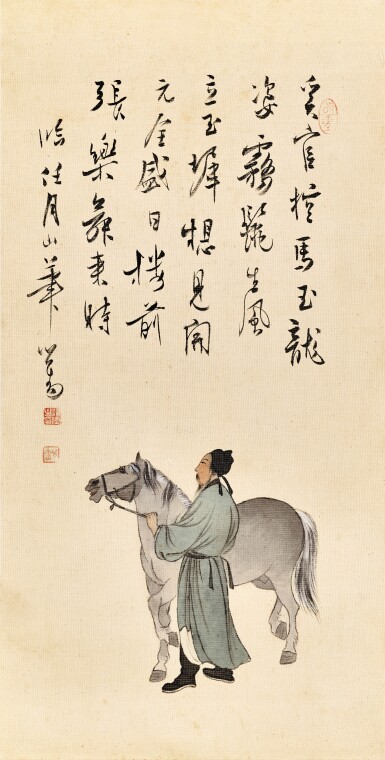 奚官控馬玉龍
姿霧鬣生風
立玉墀想見開
元全盛日樓前
張樂舞來時
臨任月山筆 心畬